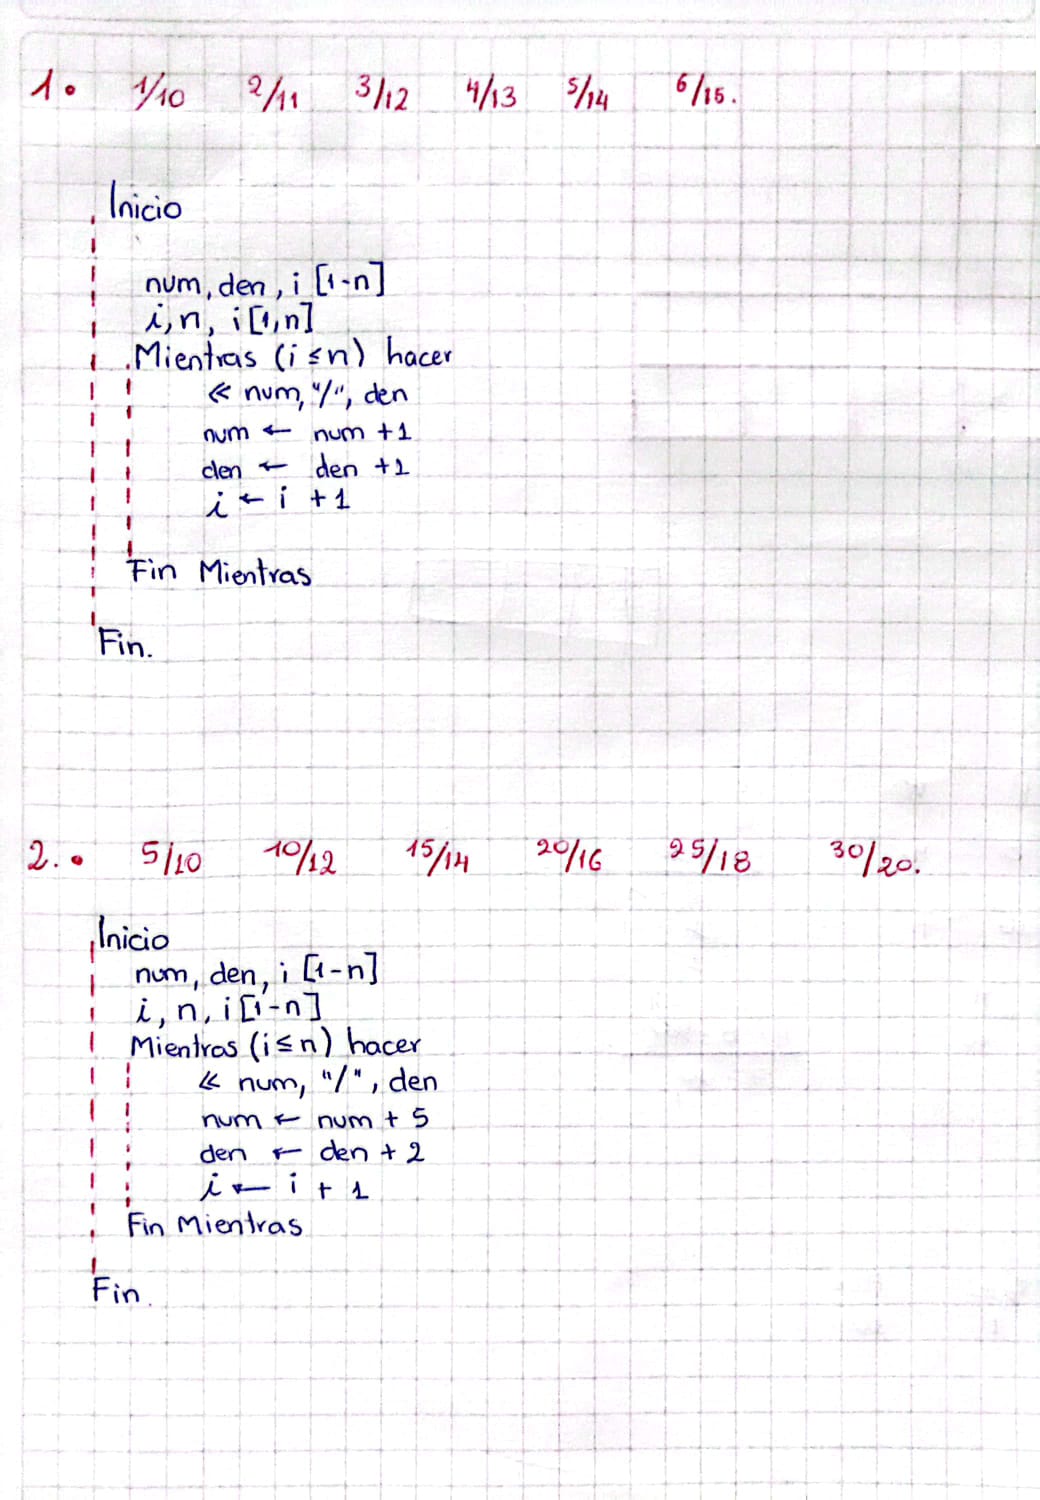 1. 1/10 2/11 3/12 4/13 5/14 6/15.
Inicio
num, den, i [1-n]
i, n, i [1,n]
Mientras (i ≤ n) hacer
≪ num, "/", den
num ← num +1
den ← den +1
i ← i +1
Fin Mientras
Fin.
2. 5/10 10/12 15/14 20/16 25/18 30/20.
Inicio
num, den, i [1-n]
i, n, i [1-n]
Mientras (i ≤ n) hacer
≪ num, "/", den
num ← num + 5
den ← den + 2
i ← i + 1
Fin Mientras
Fin.